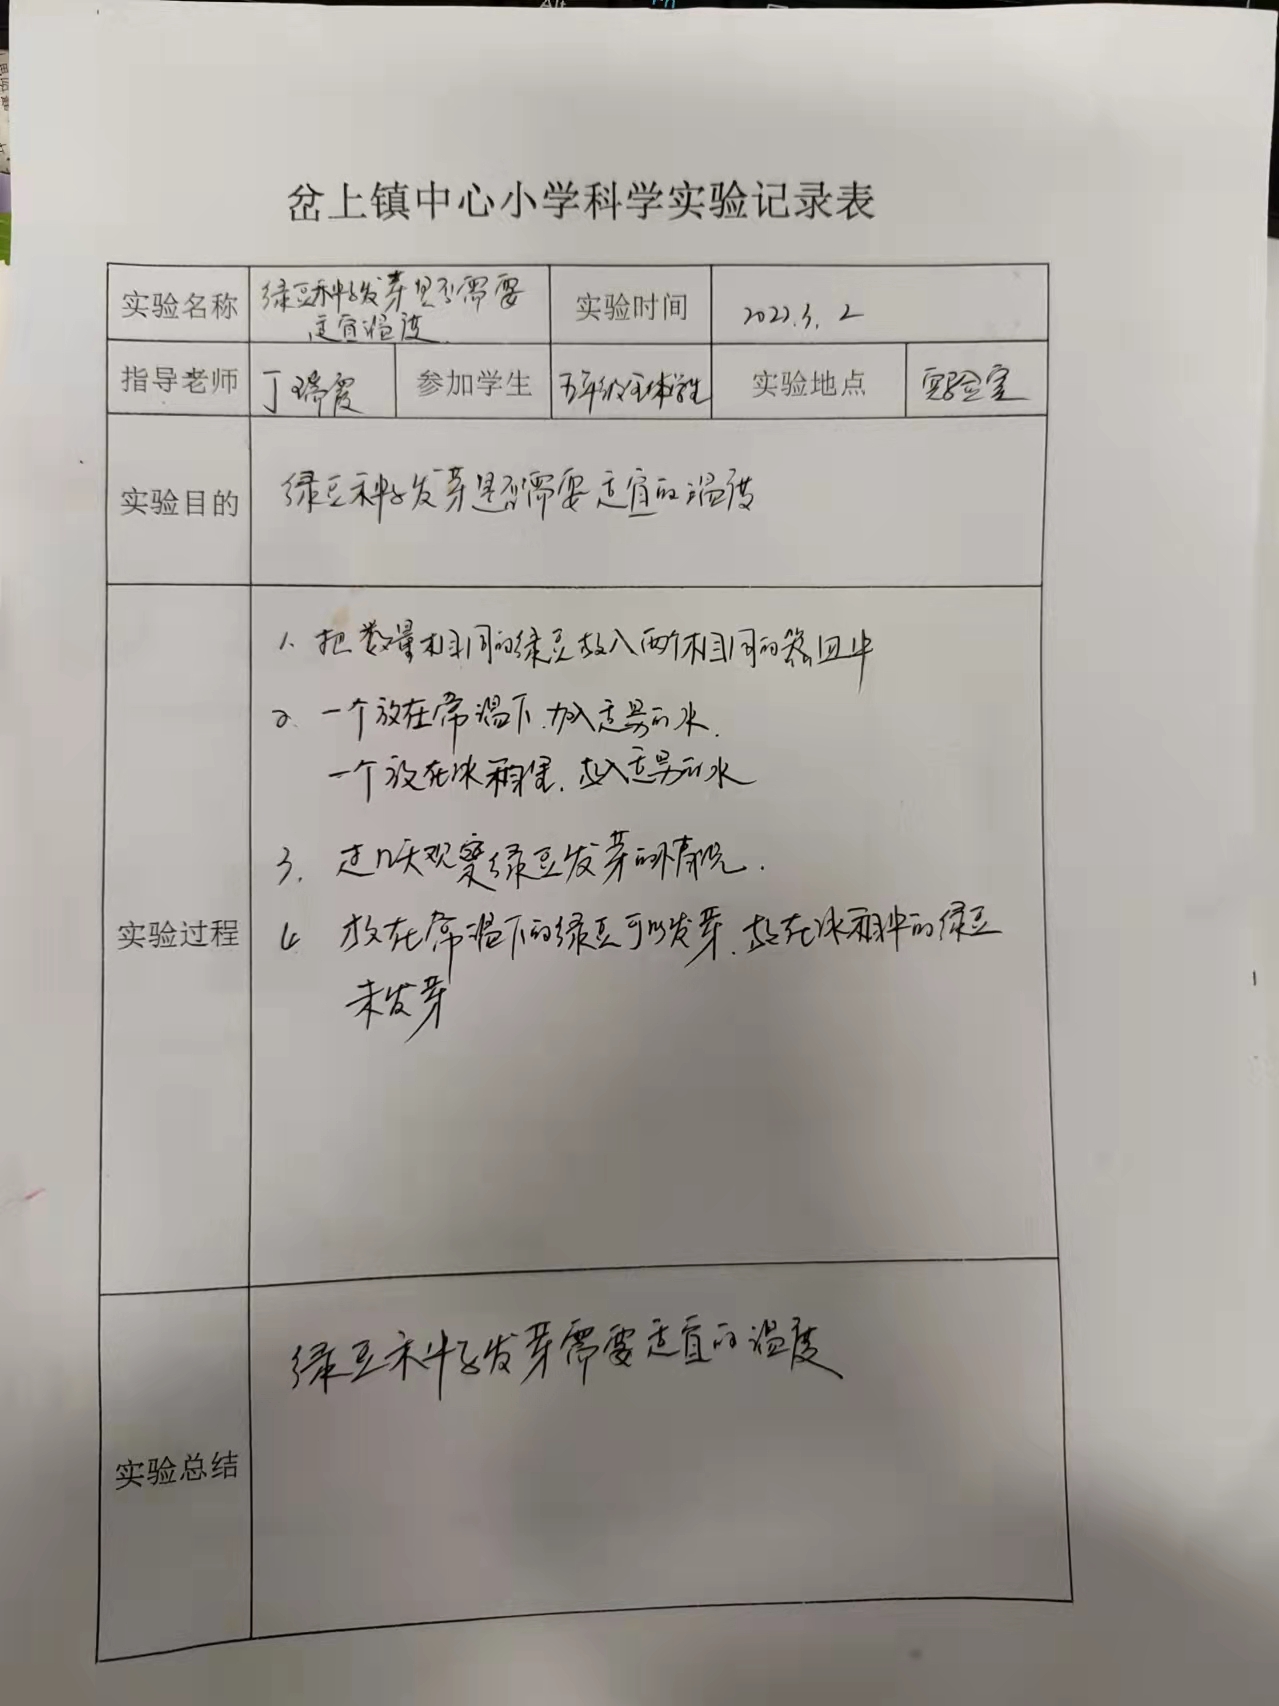 岔上镇中心小学科学实验记录表
实验名称 绿豆种子发芽是否需要 实验时间 2022.3.2
适宜温度.
指导老师 丁瑞霞 参加学生 五年级全体学生 实验地点 实验室
实验目的 绿豆种子发芽是否需要适宜的温度
实验过程
1. 把数量相同的绿豆放入两个相同的器皿中
2. 一个放在常温下.加入适量的水.
一个放在冰箱里.放入适量的水
3. 过几天观察绿豆发芽的情况.
4 放在常温下的绿豆可以发芽.放在冰箱中的绿豆
未发芽
实验总结 绿豆种子发芽需要适宜的温度